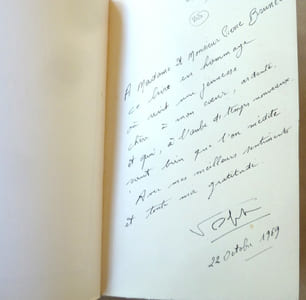 A Madame et Monsieur Pierre Brunel
ce livre en hommage
où vit une jeunesse
chère à mon cœur, ardente,
et qui, à l'aube de temps nouveaux,
veut bien que l'on médite
Avec mes meilleurs sentiments
et toute ma gratitude
22 Octobre 1969